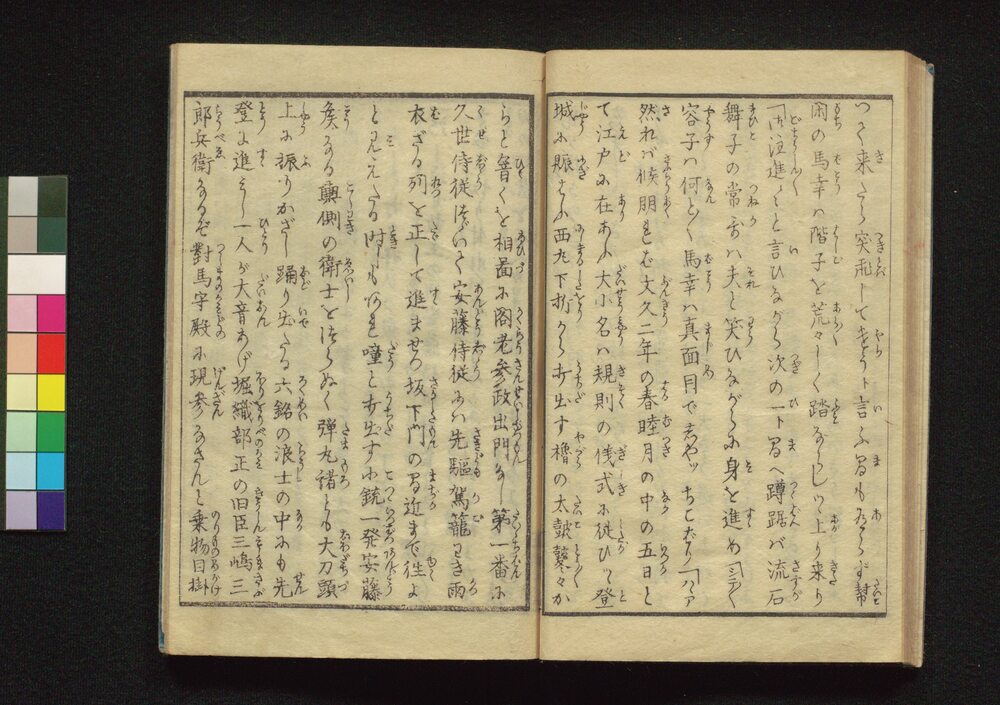 いく来たら突飛してやらうト言ふ間もあらず幇
間の馬幸ハ階子を荒々しく踏ならしツヽ上り来り
「御注進〳〵と言ひながら次の一ト間へ蹲踞バ流石
舞子の常吉ハ夫と笑ひながらに身を進め「シテ〳〵
容子ハ何と〳〵馬幸ハ真面目で「ハヽア
然れバ候朋も文久二年の春睦月の中の五日と
て江戸に在あふ大小名ハ規則の儀式に従ひツヽ登
城に賑はふ西丸下折から打出す櫓の太鼓鼕々か
らと響くを相図に閣老参政出門なし第一番に
久世侍従つゞいて安藤侍従にハ先駆駕籠わき雨
衣ざる列を正して進ませつ坂下門の間近まで徃よ
と見えたる時しもあれ噇と打出す小銃一発安藤
矦なる輿側の衛士をつらぬく弾丸諸とも大刀頭
上に振りかざし踊り出たる六銘の浪士の中にも先
登に進みし一人が大音あげ堀織部正の旧臣三嶋三
郎兵衛なるぞ對馬守殿に現参なさんと乗物目掛